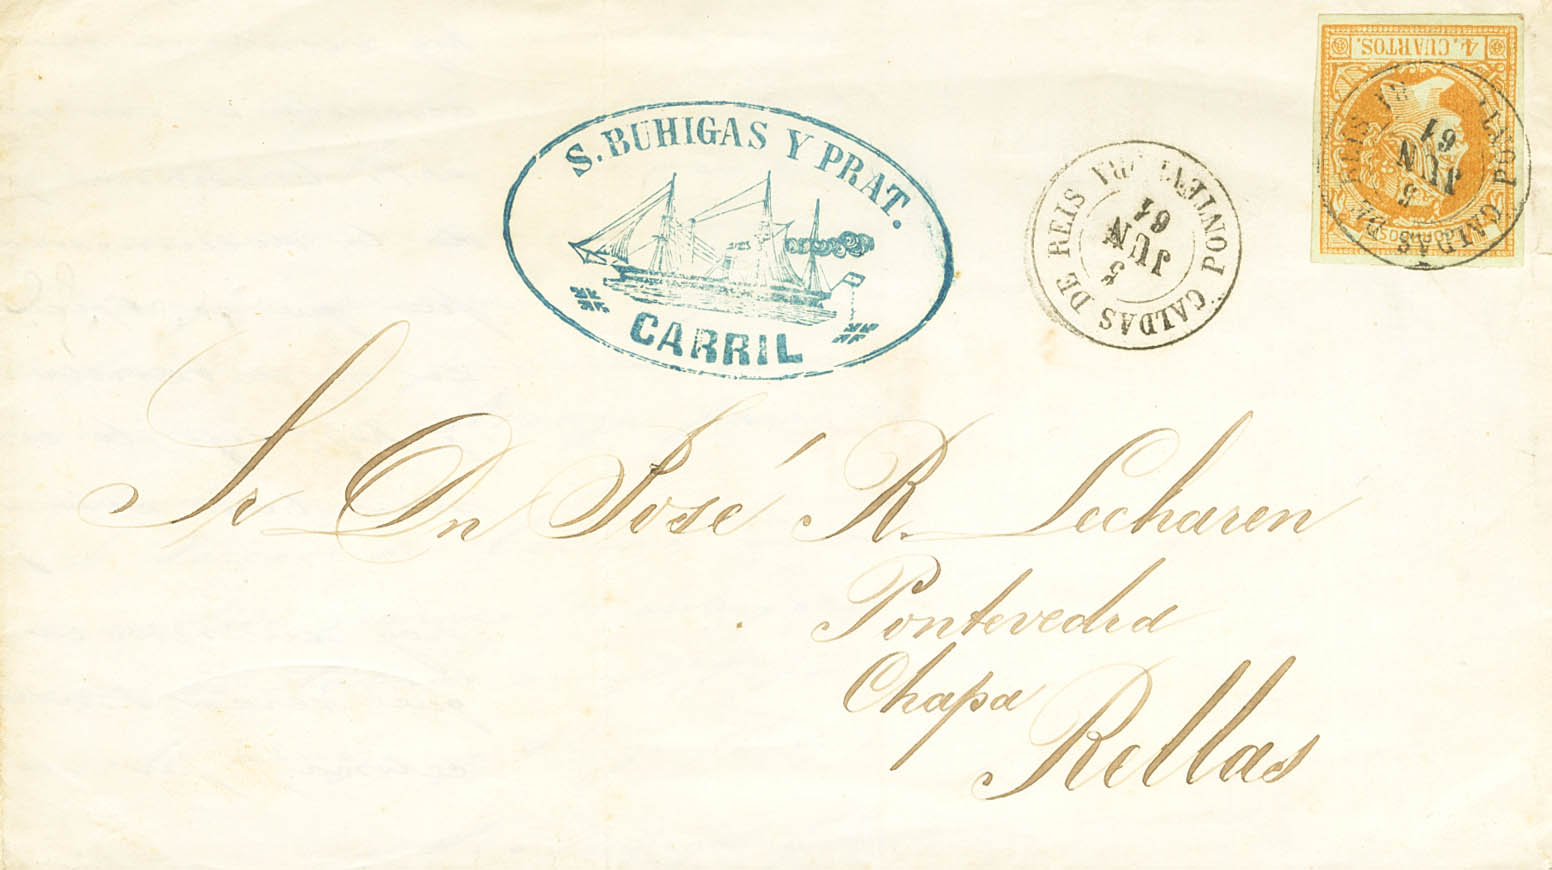 4 CUARTOS.
CALDAS DE REIS
PONTEVEDRA
5
JUN
61
S. BUHIGAS Y PRAT.
CARRIL
CALDAS DE REIS PONTEVEDRA
5
JUN
61
Sr Dn José R. Lecharen
Pontevedra
Chapa
Rellas